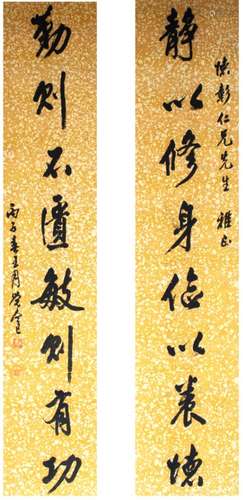 陈彰仁兄先生雅正
静以修身俭以养德
勤则不匮敏则有功
丙子春王月